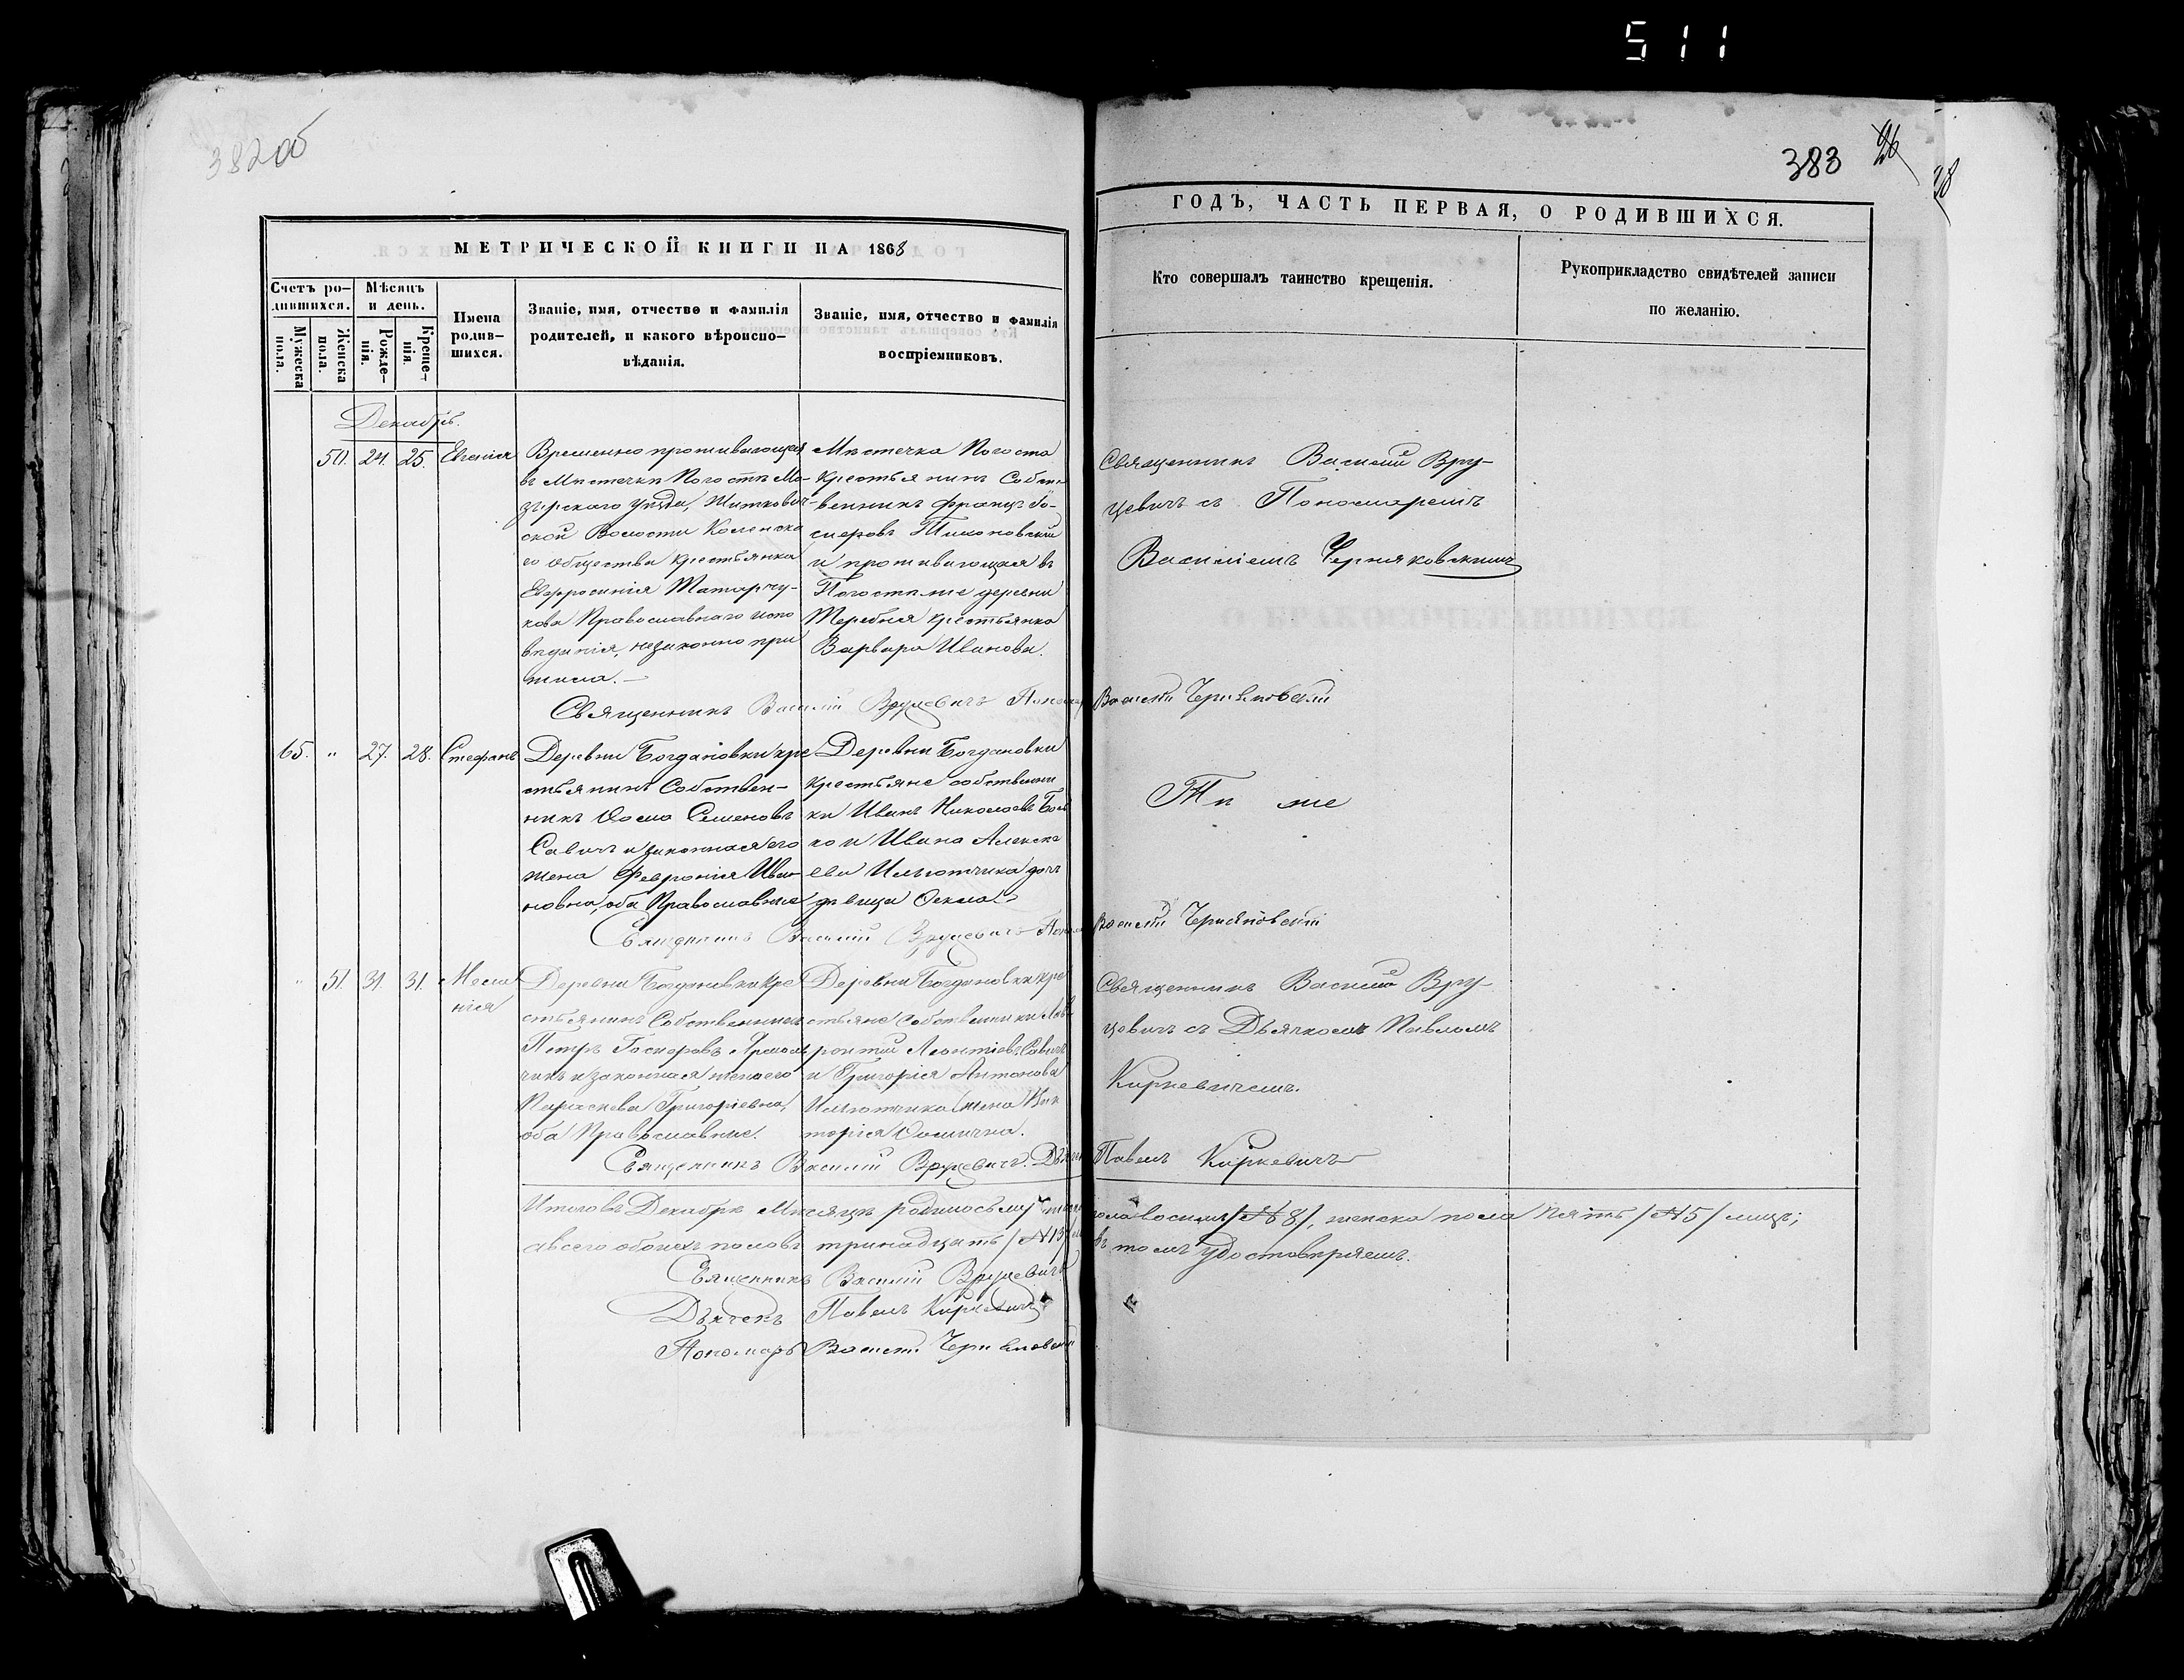 511
382 об
383
26
28
МЕТРИЧЕСКОЙ КНИГИ НА 1868
ГОДЪ, ЧАСТЬ ПЕРВАЯ, О РОДИВШИХСЯ.
Счетъ ро-
дившихся.
Мужеска
пола.
Женска
пола.
Мѣсяцъ
и день.
Рожде-
нія.
Креще-
нія.
Имена
родив-
шихся.
Званіе, имя, отчество и фамилія
родителей, и какого вѣроиспо-
вѣданія.
Званіе, имя, отчество и фамилія
воспріемниковъ.
Кто совершалъ таинство крещенія.
Рукоприкладство свидѣтелей записи
по желанію.
Декабрь.
50. 24. 25. Евгенія
Временно проживающая
въ Мѣстечкѣ Погостѣ Мо-
зырскаго Уѣзда, Житкович-
ской Волости Коленска
го общества крестьянка
Евфросинія Татарчу-
кова Православнаго испо
вѣданія, незаконно при
жила.
Мѣстечка Погоста
крестьянинъ Собст-
венникъ Францъ Іо-
сифовъ Тихоновскій
и проживающая въ
Погостѣ же деревни
Теребня крестьянка
Варвара Иванова.
Священникъ Василій Вру-
цевичъ съ Пономаремъ
Василіемъ Черняковскимъ
Священникъ Василій Вруцевичъ Пономарь Василій Черняковскій
65. " 27. 28. Стефанъ
Деревни Богдановки кре
стьянинъ Собствен-
никъ Ѳома Семеновъ
Савичъ и законная его
жена Февронія Ива-
новна, оба Православные
Деревни Богдановки
крестьяне собственни
ки Иванъ Николаевъ
ко и Ивана Алексѣ
ева Ильютчика дочь
дѣвица Ѳекла
Тѣ же
Священникъ Василій Вруцевичъ Василій Черняковскій
" 51. 31. 31. Мела
нія
Деревни Богдановки кре
стьянинъ Собственникъ
Петръ Гаспаровъ
чикъ и законная жена его
Параскева Григоріевна,
оба Православные.
Деревни Богдановки кре
стьяне собственники Лав
рентій Леонтіевъ Савичъ
и Григорія Антонова
Ильютчика жена Вик
торія Ѳомична.
Священникъ Василій Вру-
цевичъ съ Дьячкомъ Павломъ
Киркевичемъ.
Священникъ Василій Вруцевичъ. Дьячекъ Павелъ Киркевичъ
Итого въ Декабрѣ Мѣсяцѣ родилось муж пола восемь /№ 8/, женска пола пять /№ 5/ лицъ;
а всего обоихъ половъ тринадцать /№ 13/ въ томъ удостовѣряемъ.
Священникъ Василій Вруцевичъ
Дьячекъ Павелъ Киркевичъ
Пономарь Василій Черняковскій